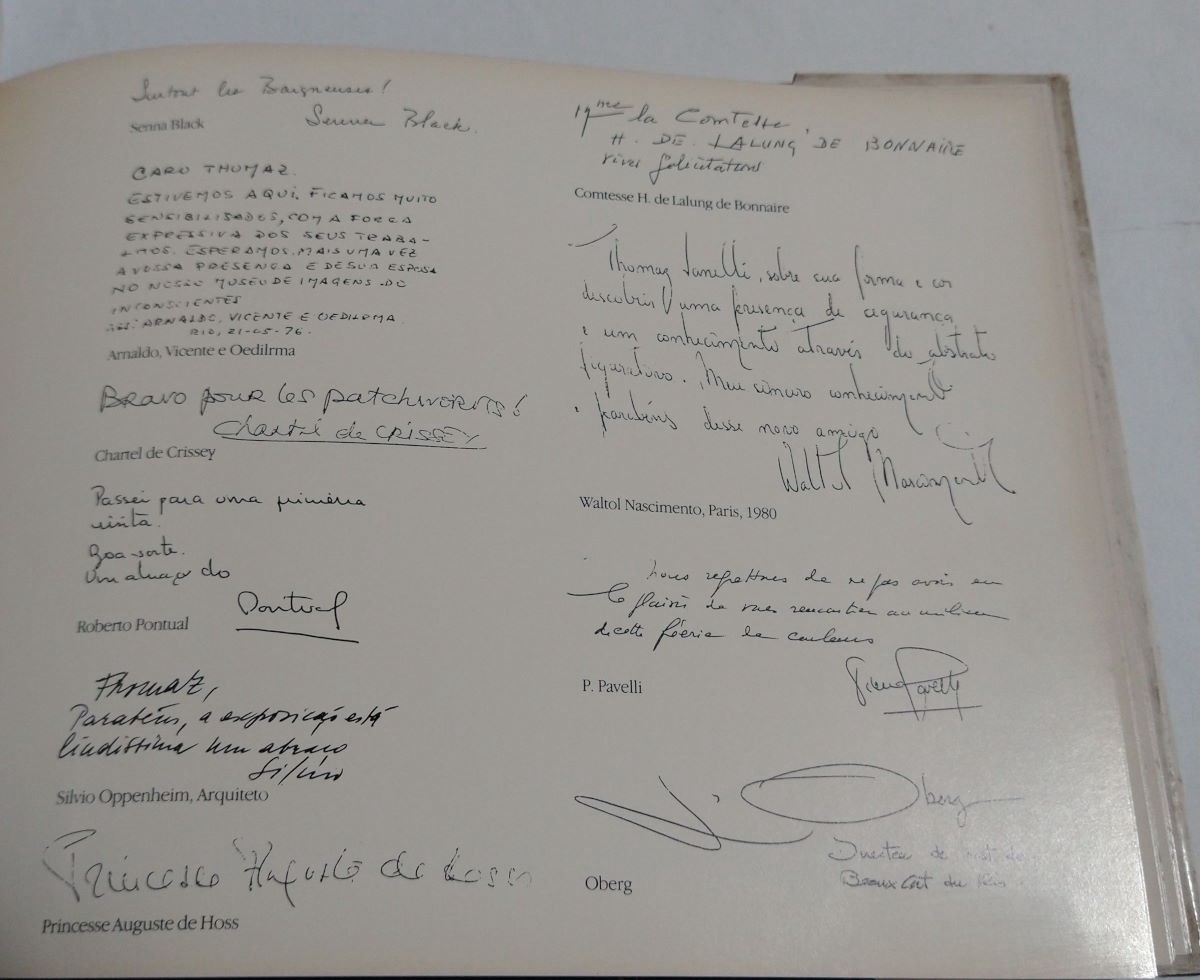 Surtout les Baigneuses!
Senna Black.
Senna Black
CARO THOMAZ.
ESTIVEMOS AQUI. FICAMOS MUITO
SENSIBILISADOS, COM A FORÇA
EXPRESSIVA DOS SEUS TRABA-
LHOS. ESPERAMOS. MAIS UMA VEZ
A VOSSA PRESENÇA E DE SUA ESPOSA
NO NOSSO MUSEU DE IMAGENS DO
INCONSCIENTES
ARNALDO, VICENTE E OEDILRMA.
RIO, 21-05-76.
Arnaldo, Vicente e Oedilrma
Bravo pour les patchworks!
Chartel de Crissey
Chartel de Crissey
Passei para uma primeira
visita.
Boa sorte.
Um abraço do
Pontual
Roberto Pontual
Thomaz,
Parabéns, a exposição está
lindissima um abraço
Silvio
Silvio Oppenheim, Arquiteto
Princesse Auguste de Hoss
Princesse Auguste de Hoss
la Comtesse
H. DE. LALUNG DE BONNAIRE
vives félicitations
Comtesse H. de Lalung de Bonnaire
Thomaz Ianelli, sobre sua forma e cor
descobris uma presença de segurança
e um conhecimento através do abstrato
figurativo. Meu sincero conhecimento
e parabéns desse novo amigo
Waltol Nascimento
Waltol Nascimento, Paris, 1980
Nous regrettons de ne pas avoir eu
le plaisir de vous rencontrer au milieu
de cette féerie de couleurs
Pavelli
P. Pavelli
Oberg
Directeur de
Beaux Art du
Oberg